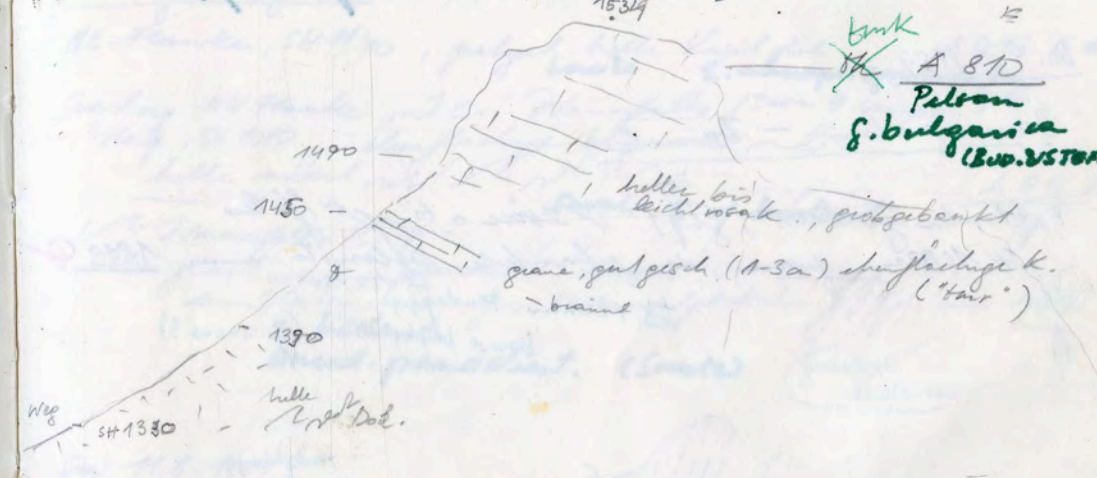 1534
A 810
Pelson
G. bulgarica
1490
heller bis
leicht rosa K., grobgebankt
1450
graue, gut gesch. (1-3cm) ebenflächige K.
- braune
1390
helle
Dol.
Weg
SH 1330